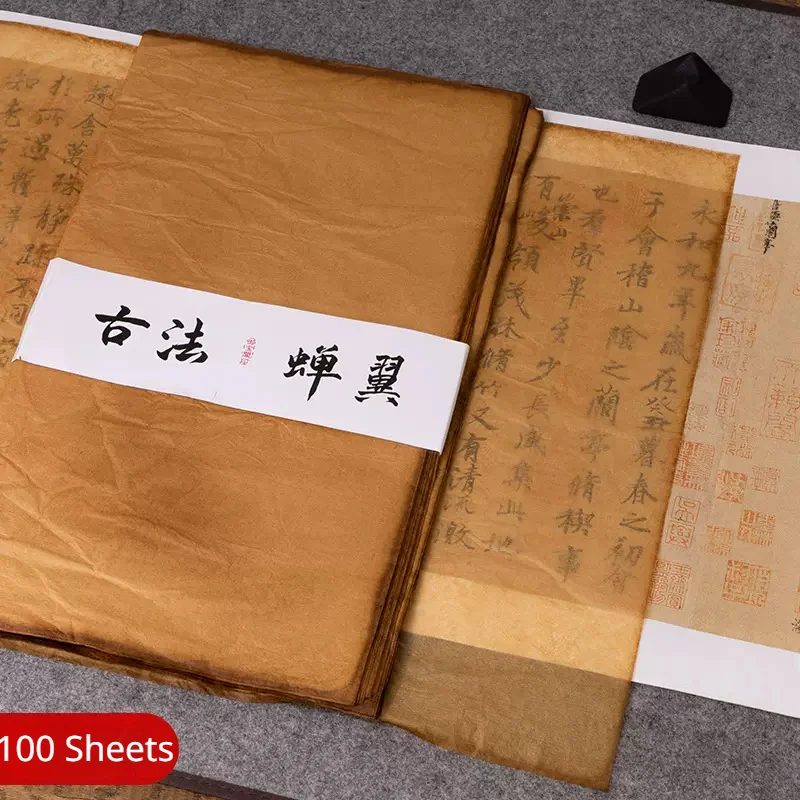 古法 蝉翼
永和九年歲在癸丑暮春之初會
于會稽山陰之蘭亭脩稧事
也羣賢畢至少長咸集此地
有崇山峻領茂林脩竹又有清流激
趣舍萬殊靜躁不同
於所遇
知老
100 Sheets